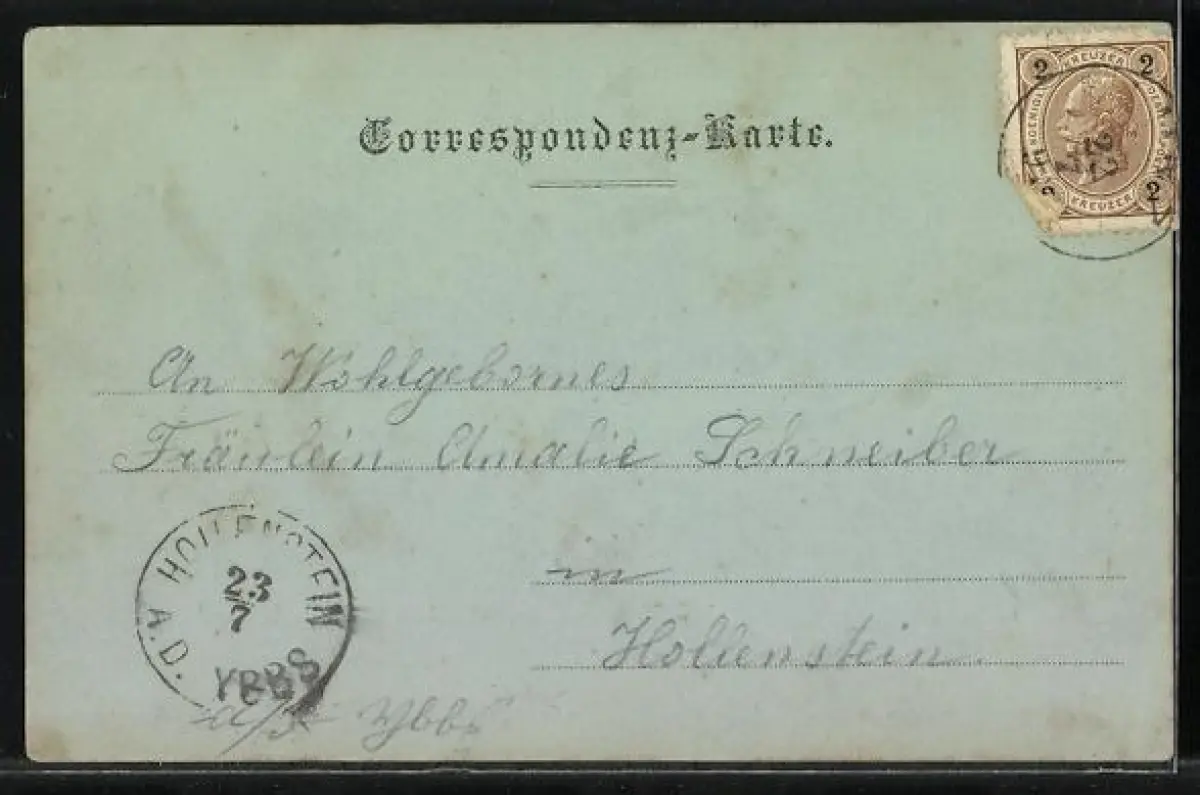 Correspondenz-Karte.
2 KREUZER 2
2 KREUZER 2
An Wohlgebornes
Fräulein Amalie Schneiber
in
Hollenstein.
HOLLENSTEIN
23
7
A.D. YBBS
a/d Ybbs